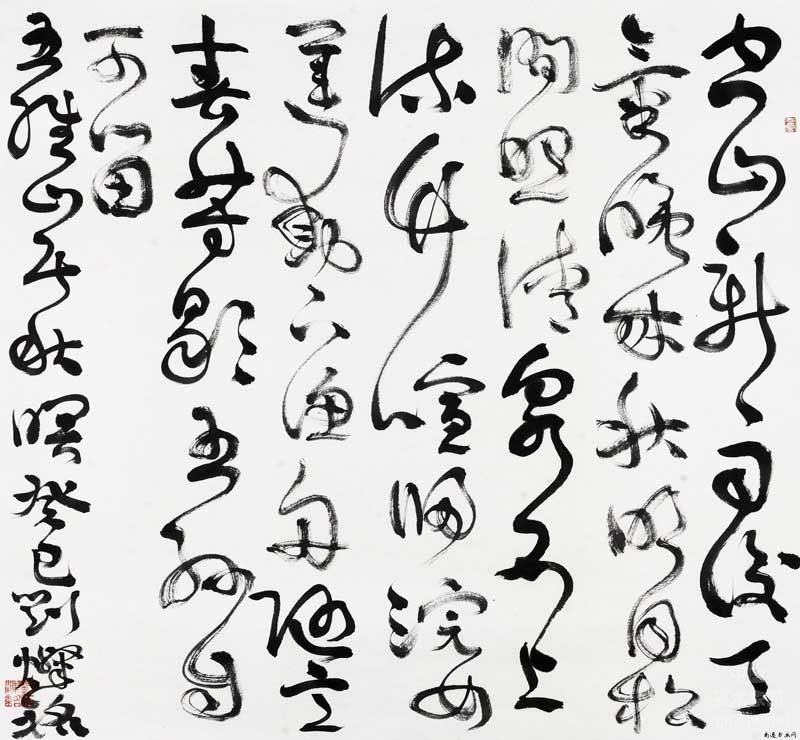 空山新雨後天
氣晚來秋明月松
間照清泉石上
流竹喧歸浣女
蓮動下漁舟隨意
春芳歇王孫自
可留
王維山居秋暝癸巳劉